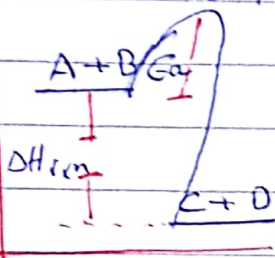 A + B Ea
ΔHrxn
C + D